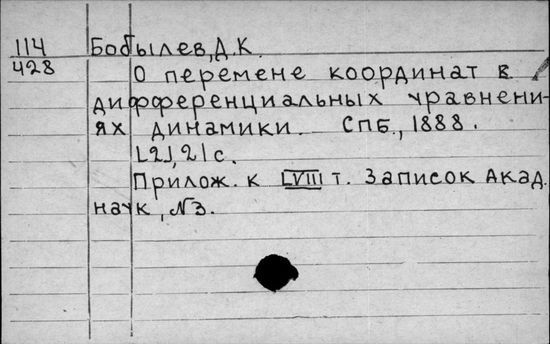 114 Бобылев, Д. К.
428 О перемене координат в
дифференциальных уравнени-
ях динамики. СПб., 1888.
[2], 21 с.
Прилож. к LVIII т. Записок Акад.
наук, N3.